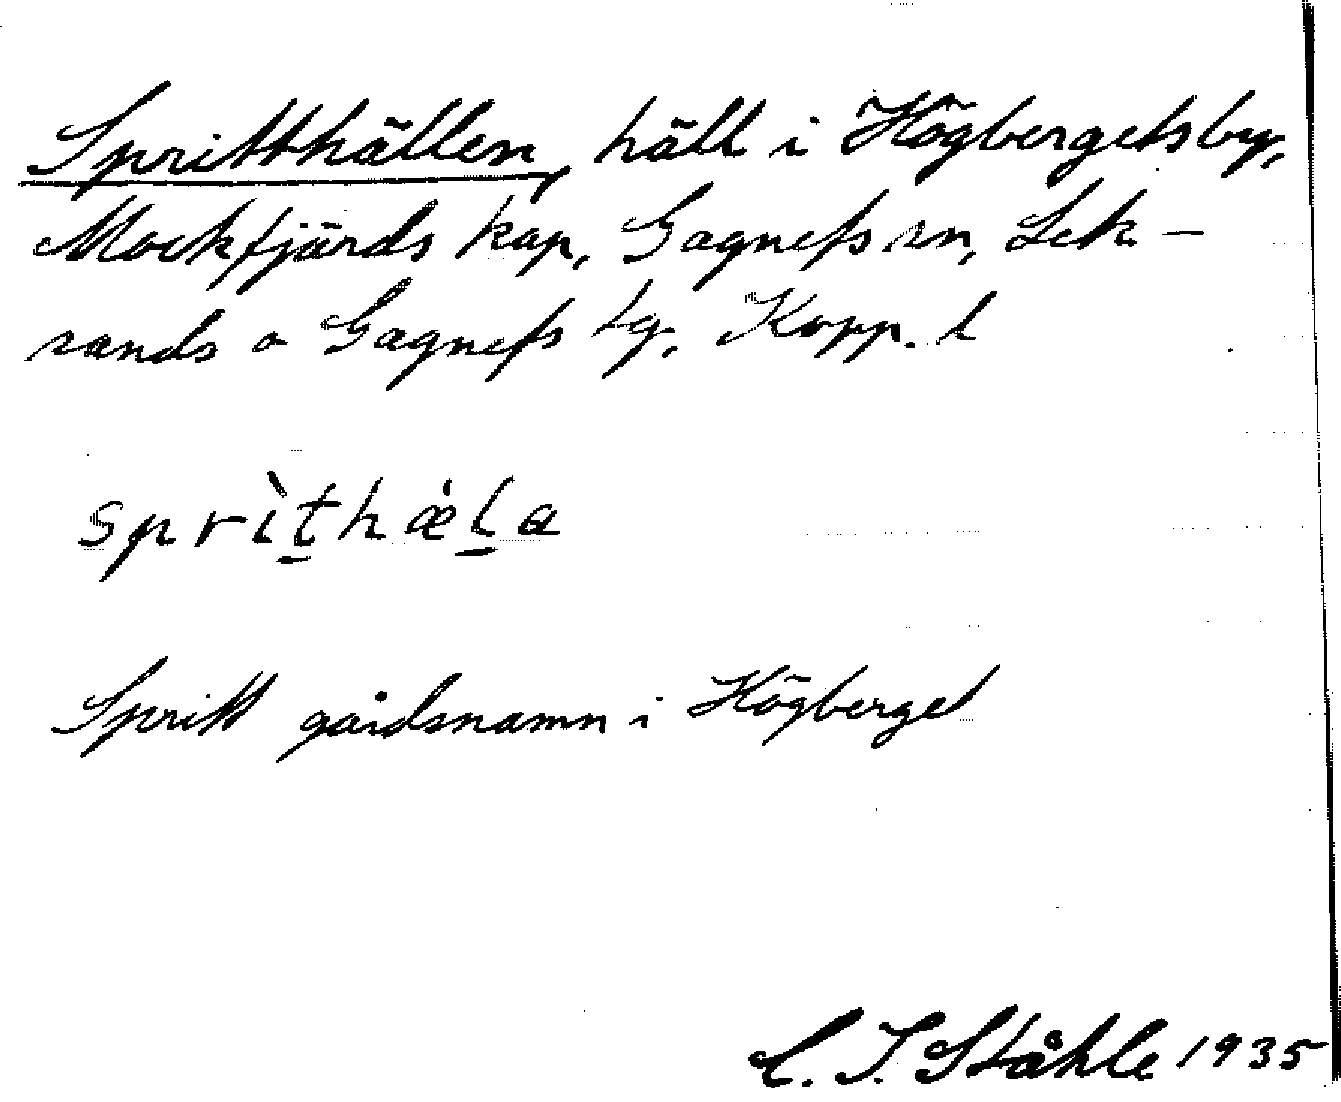 Spritthällen, häll i Högbergets by,
Mockfjärds kap, Gagnefs sn, Lek-
sands o Gagnefs tg, Kopp. l
sprìt̲hæ̇l̲a
Spritt gårdsnamn i Högberget
C. I. Ståhle 1935